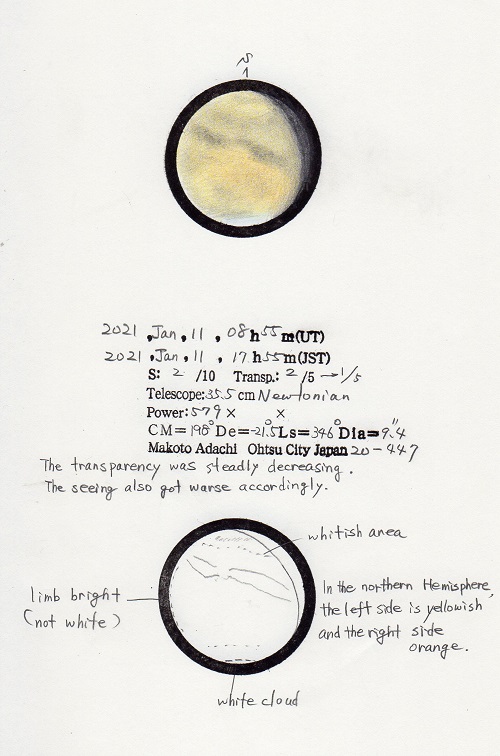 S
2021 , Jan , 11 , 08h55m(UT)
2021 , Jan , 11 , 17h55m(JST)
S: 2 /10 Transp.: 2 /5 → 1/5
Telescope:35.5 cm Newtonian
Power:579 × ×
CM=198° De=-21.5° Ls=346° Dia=9.4"
Makoto Adachi Ohtsu City Japan 20-447
The transparency was steadily decreasing.
The seeing also got warse accordingly.
whitish area
limb bright
(not white)
In the northern Hemisphere,
the left side is yellowish
and the right side
orange.
white cloud